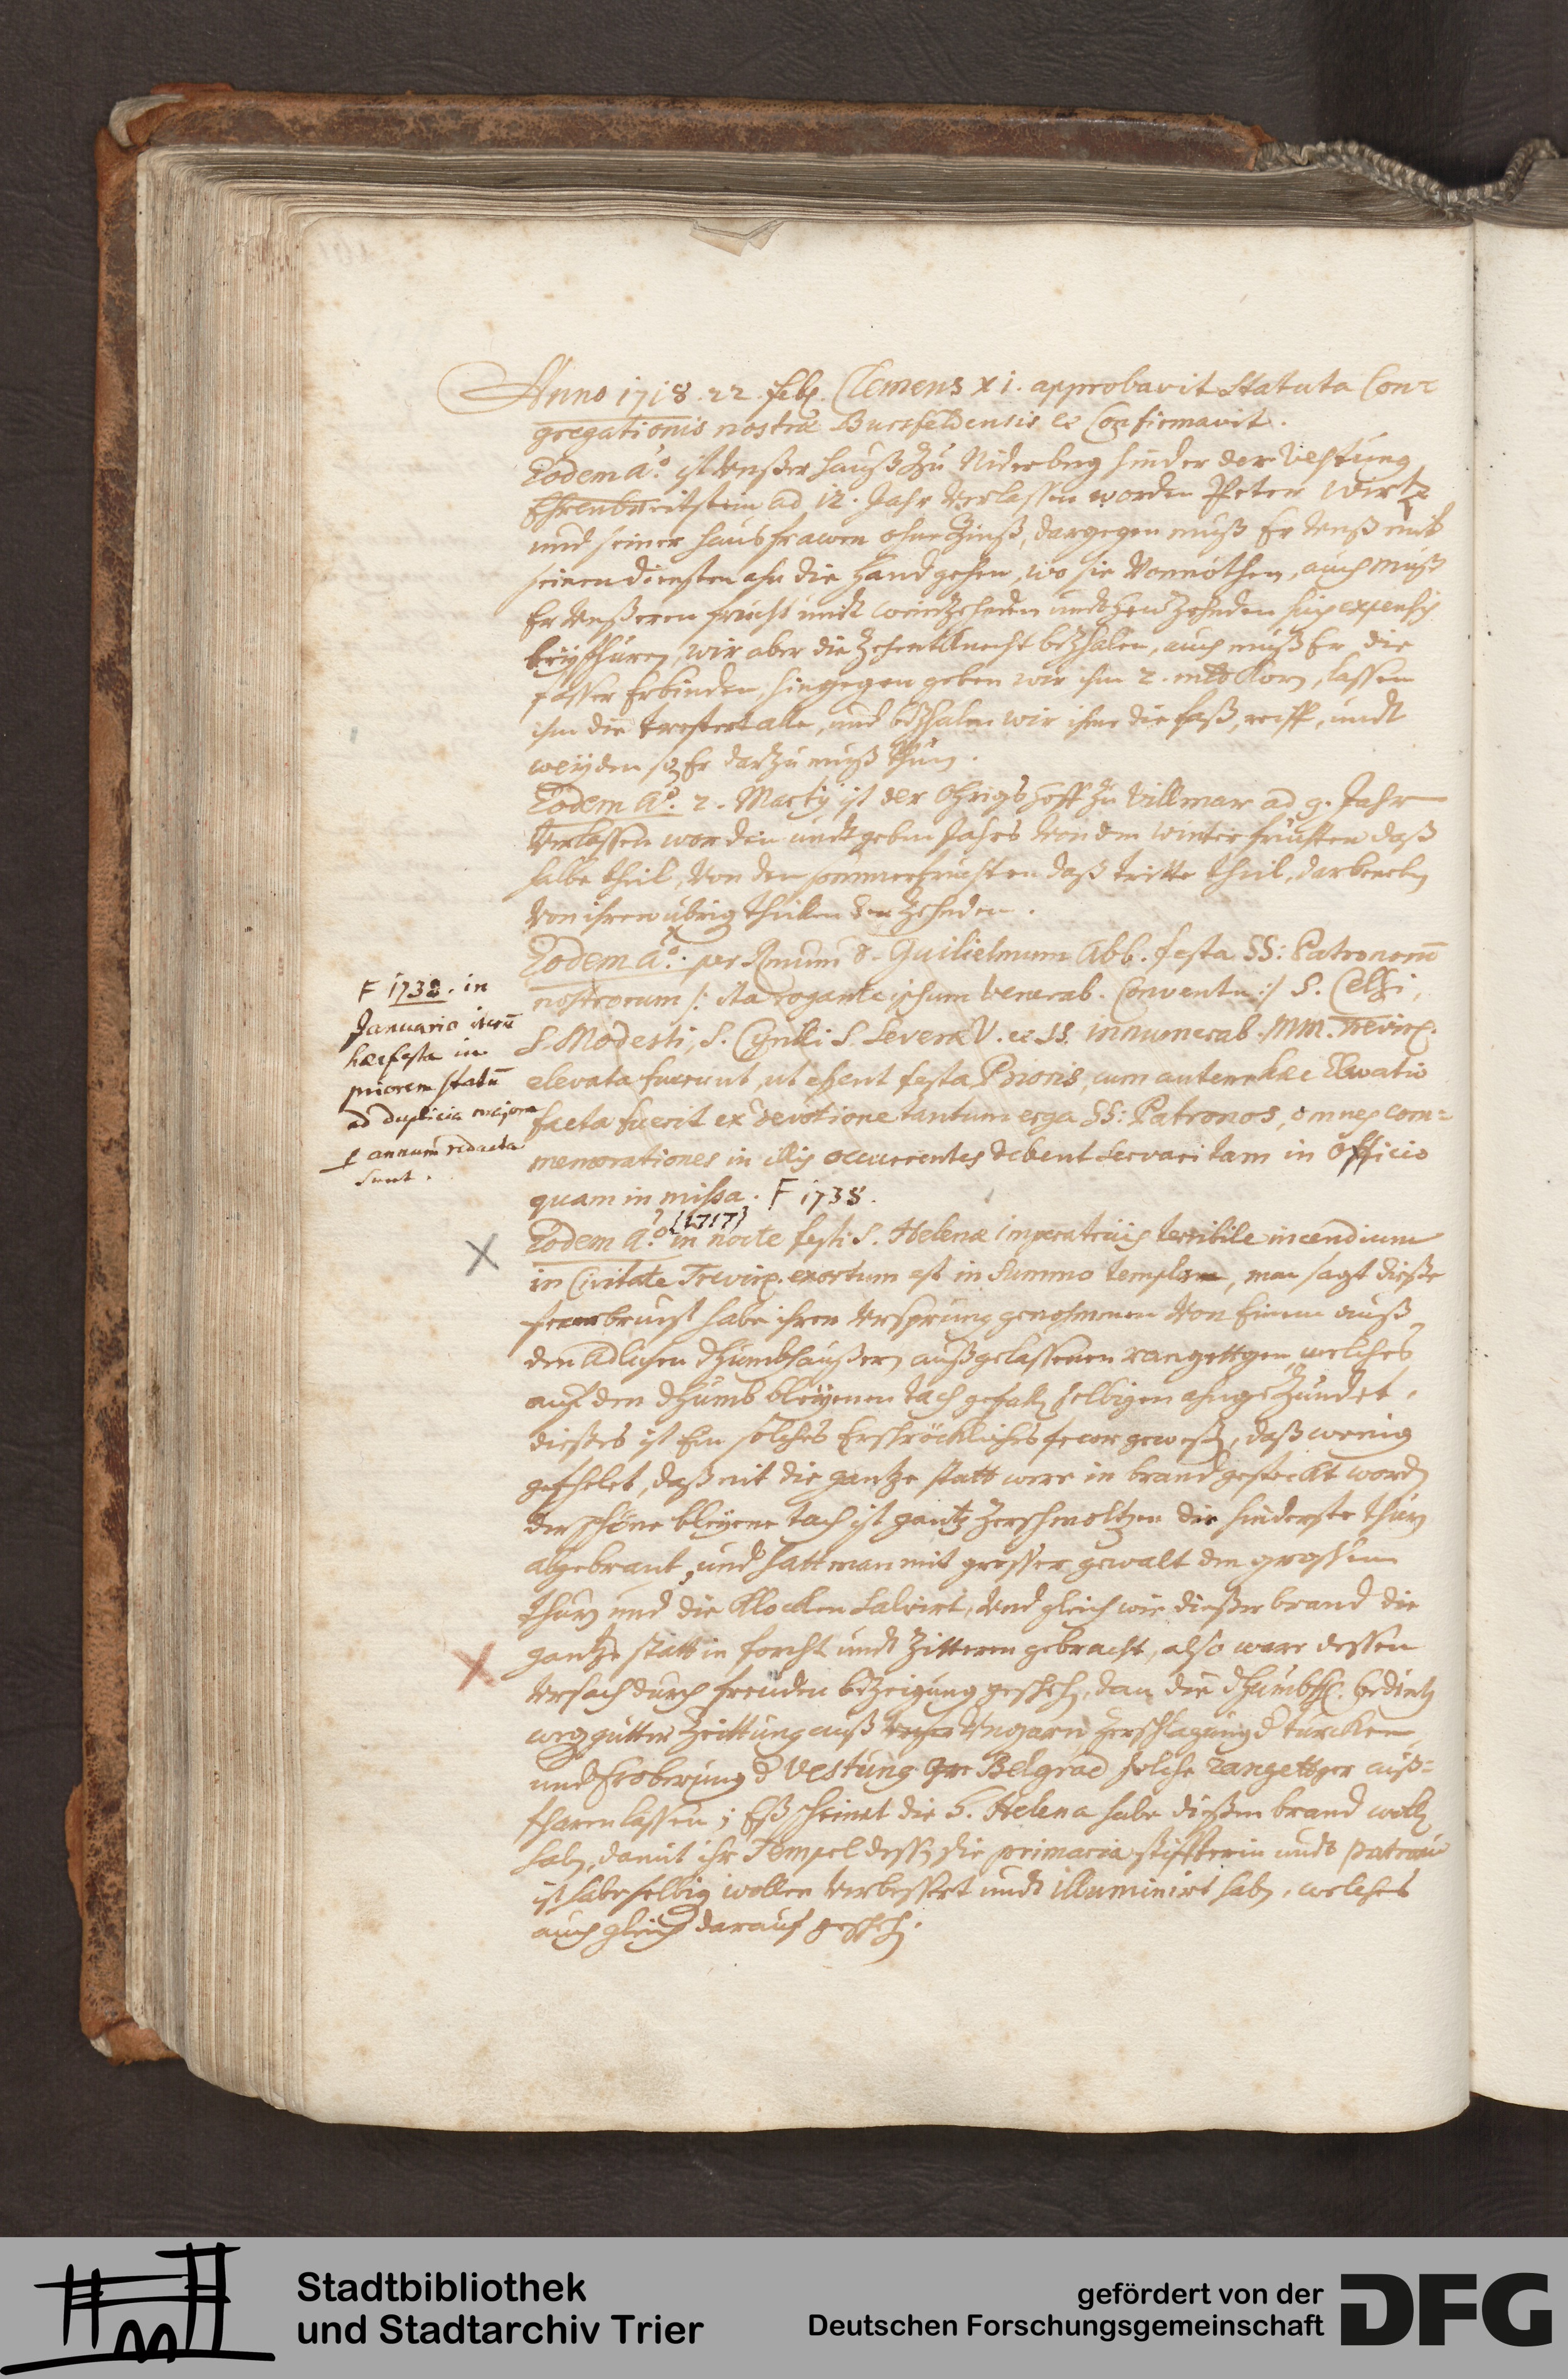 Anno 1718. 22. feb. Clemens XI. approbavit Statuta Con-
gregationis nostræ Bursfeldensis et Confirmavit.
Eodem Aº. ist Unßer Hauß zu Niderberg hinder der Vestung
Ehrenbreitstein ad 12. Jahr Verlassen worden Peter Wirtz
und seiner Hausfrawen ohne Zinß, dargegen muß Er Unß mit
seinen diensten ahn die Hand gehen, wo sie Vonnöthen, auch muß
Er Unßeren frucht undt weinzehnden undt Hew Zehnden suis expensis
beyführen, wir aber die Zehentknecht bezhalen, auch muß Er die
fasser Erbinden, hingegen geben wir ihm 2. mltr Korn, lassen
ihm die trester alle, und bezhalen wir ihme die faß, reiff, undt
weyden so Er darzu muß thun.
Eodem Aº. 2. Martij ist der Hoff zu Villmar ad 9. Jahr
Verlassen worden undt geben Jahrs Von den winterfruchten daß
halbe theil, Von den sommerfruchten daß tritte theil, darbeneben
Von ihren ubrig theilen den Zehnden.
Eodem Aº. per Rmum D. Guilielmum Abb. festa SS: Patronorum
nostrorum /: ita rogante ipsum Venerab. Conventu :/ S. Celsi,
S. Modesti, S. Cyrilli S. Severæ V. et SS. innumerab. MM. Trevir.
elevata fuerunt, ut essent festa Prioris, cum autem hæc Elevatio
facta fuerit ex devotione tantum erga SS: Patronos, omnes com-
memorationes in illis occurrentes debent servari tam in Officio
quam in missa. F 1738.
F 1738. in
Januario iterū
hæc festa in
priorem statū
ad duplicia majora
p annum redacta
sunt.
{1717}
Eodem Aº. in nocte festi S. Helenæ imperatricis terribile incendium
in Civitate Trevir. exortum est in Summo templo, man sagt dieße
fewerbrunst habe ihren Ursprung genohmenen Von Einem auß
den Adlichen dhumbhaußern außgelassenen rangettgen, welches
auf den dhumb bleyenen tach gefall selbigen ahngezündet.
dießes ist Ein solches Erschröckliches fewer geweß, daß wenig
gefhelet, daß nit die gantze statt were in brand gesteckt word
der schöne bleyene tach ist gantz zerschmoltzen die hinderste thurn
abgebrant, und hatt man mit grosser gewalt den grossen
thurn und die Klocken Salvirt, Und gleich wie dießer brand die
gantze statt in forcht undt Zitteren gebracht, also ware dessen
Ursach durch freuden bezeigung gescheh, dan die dhumbh. bedient
weg gutter Zeittung auß Ungarn Zerschlagung d turcken
und Eroberung d Vestung Belgrad solche rangettger auß-
fharen lassen; Eß scheinet die S. Helena habe dießen brand woll
hab, damit ihr Tempel dessen sie primaria stiffterin undt patronin
ist habe selbig wollen Verbessert undt illuminirt hab, welches
auch gleich darauf gescheh.
Stadtbibliothek
und Stadtarchiv Trier
gefördert von der
Deutschen Forschungsgemeinschaft
DFG